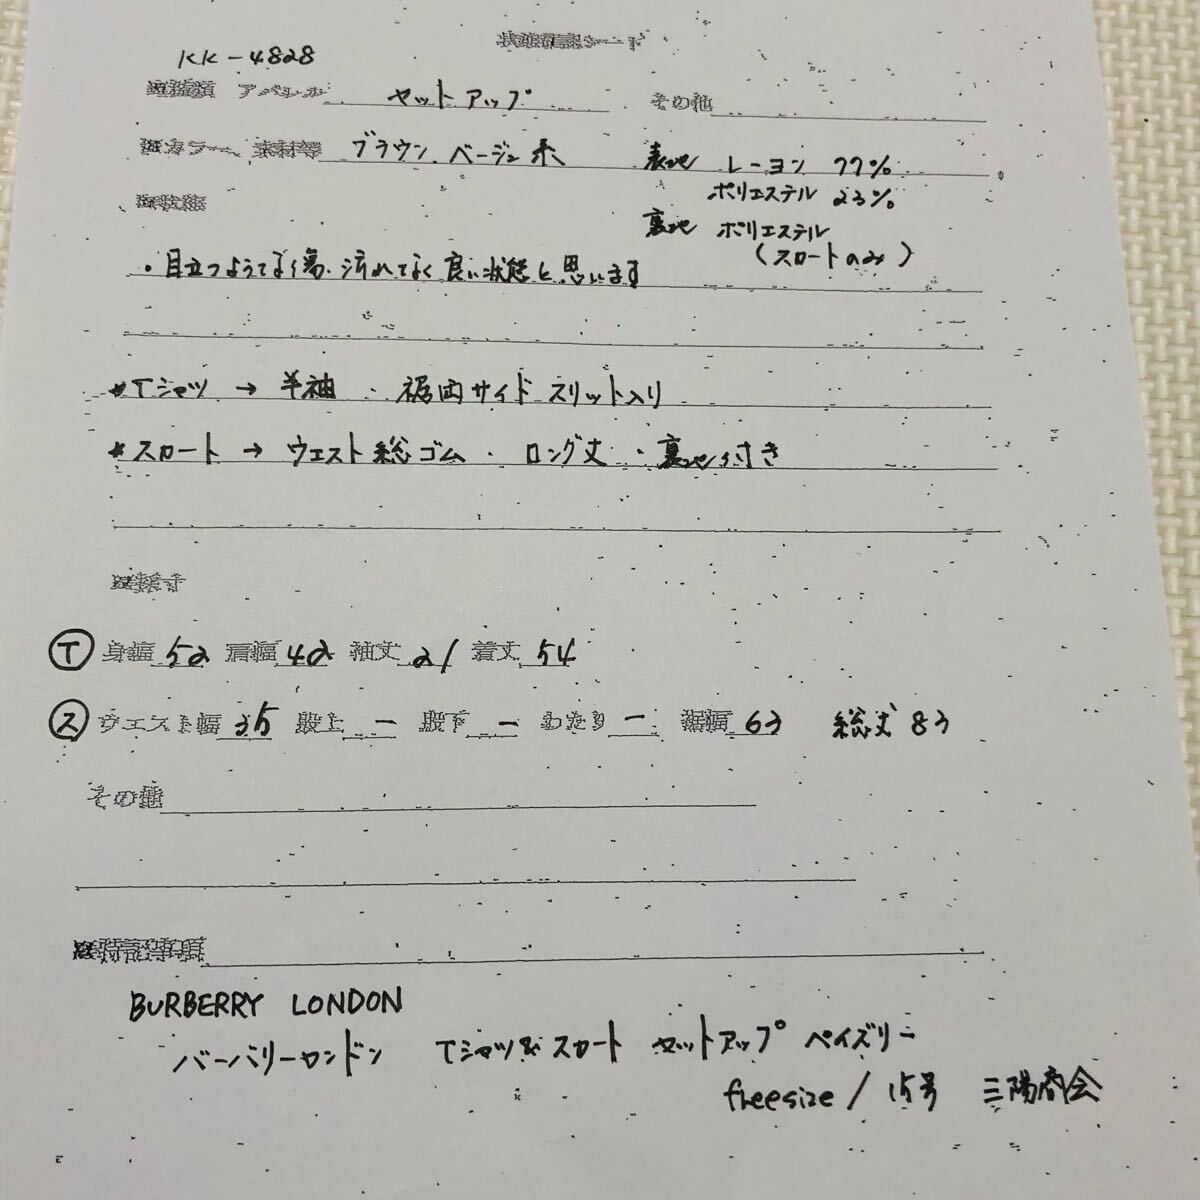 状態確認シート
KK-4828
アパレル セットアップ その他
カラー、素材等 ブラウン ベージュ系 表地 レーヨン 77%
ポリエステル 23%
裏地 ポリエステル
(スカートのみ)
・目立つようてなく傷、汚れてなく良い状態と思います
*Tシャツ → 半袖 ・ 裾両サイド スリット入り
*スカート → ウエスト総ゴム ・ ロング丈 ・ 裏地付き
Ⓣ 身幅 52 肩幅 42 袖丈 21 着丈 54
ス ウエスト幅 35 股上 ー 股下 ー わたり ー 裾幅 63 総丈 83
その他
特記事項
BURBERRY LONDON
バーバリーロンドン Tシャツ& スカート セットアップ ペイズリー
freesize / 15号 三陽商会